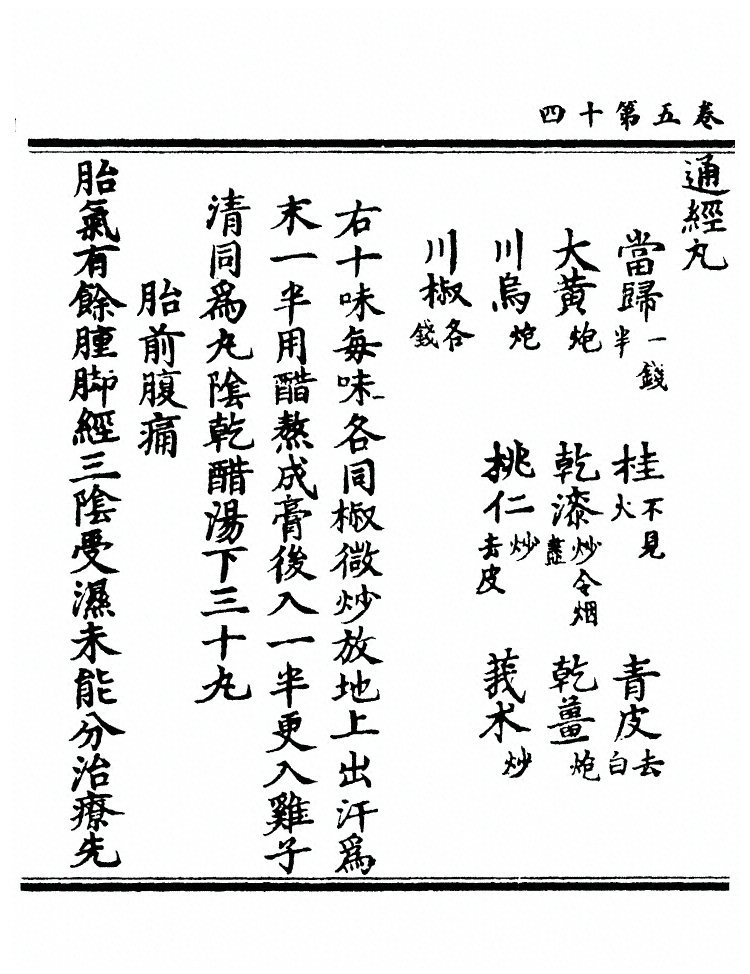 卷五第十四
通經丸
當歸一錢半 桂不見火 青皮去白
大黃炮 乾漆炒令烟盡 乾薑炮
川烏炮 桃仁炒去皮 莪术炒
川椒各錢
右十味每味各同椒微炒放地上出汗爲
末一半用醋熬成膏後入一半更入雞子
清同爲丸陰乾醋湯下三十丸
胎前腹痛
胎氣有餘腫脚經三陰受濕未能分治療先